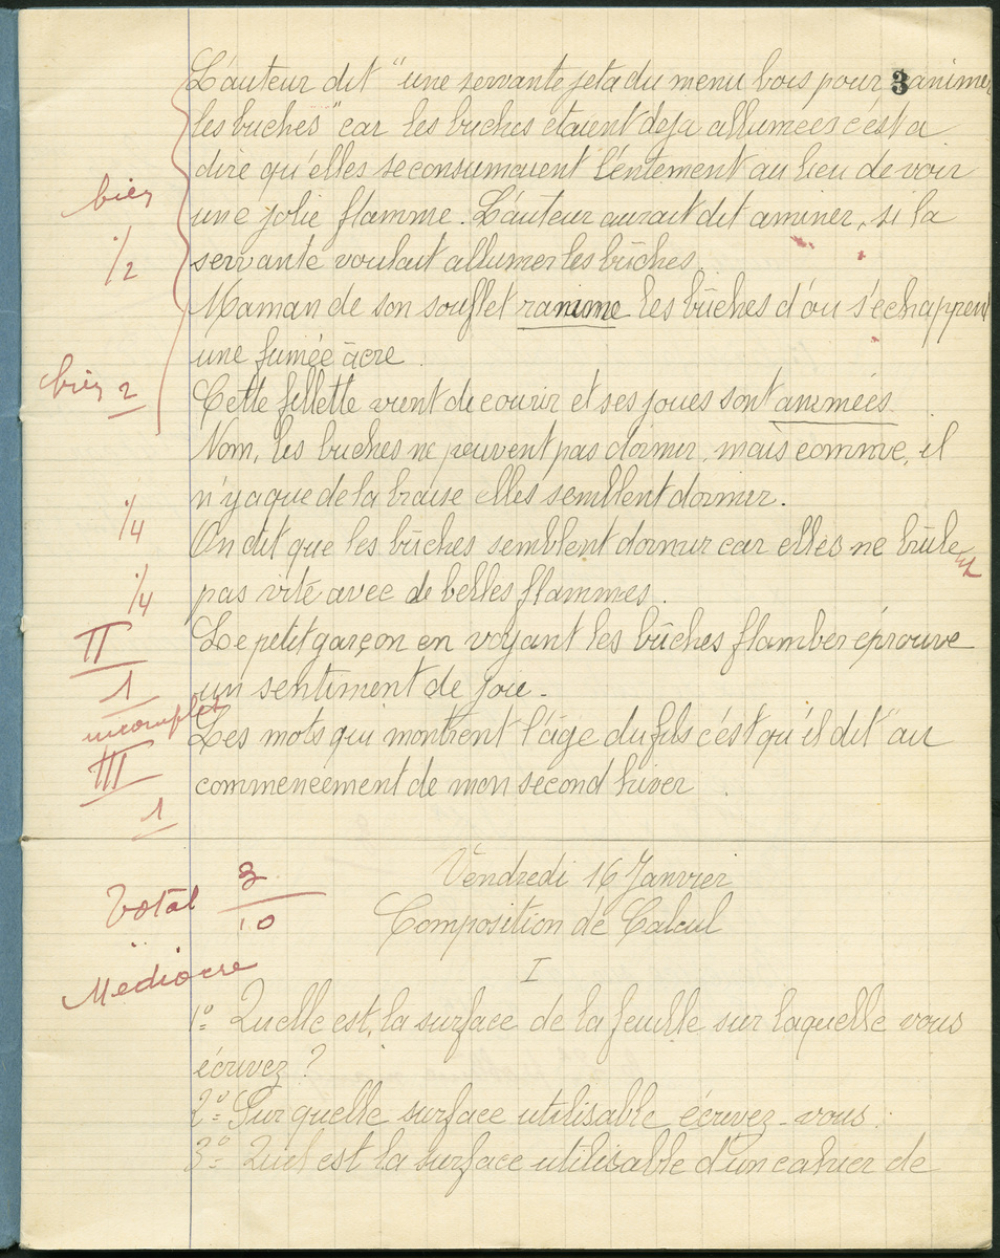 L'auteur dit "une servante jeta du menu bois pour 3animer
les buches" car les buches étaient deja allumées c'est a
dire qu'elles se consumaient lentement au lieu de voir
bien
une jolie flamme. L'auteur aurait dit aminer, si la
1/2
servante voulait allumer les bûches.
Maman de son soufflet ranime les bûches d'ou s'echappent
une fumée âcre.
bien 2
Cette fillette vient de courir et ses joues sont animées.
Nom, les buches ne peuvent pas dormir, mais comme, il
n'y a que de la braise elles semblent dormir.
1/4
On dit que les bûches semblent dormir car elles ne brûlent
1/4
pas vite avec de belles flammes.
II
Le petit garçon en voyant les bûches flamber éprouve
1
un sentiment de joie.
incomplet
Les mots qui montrent l'âge du fils c'est qu'il dit "au
III
commencement de mon second hiver.
1
Vendredi 16 Janvier
Total 3/10
Composition de Calcul
Médiocre
I
1° Quelle est, la surface de la feuille sur laquelle vous
écrivez ?
2° Sur quelle surface utilisable écrivez-vous.
3° Quel est la surface utilisable d'un cahier de